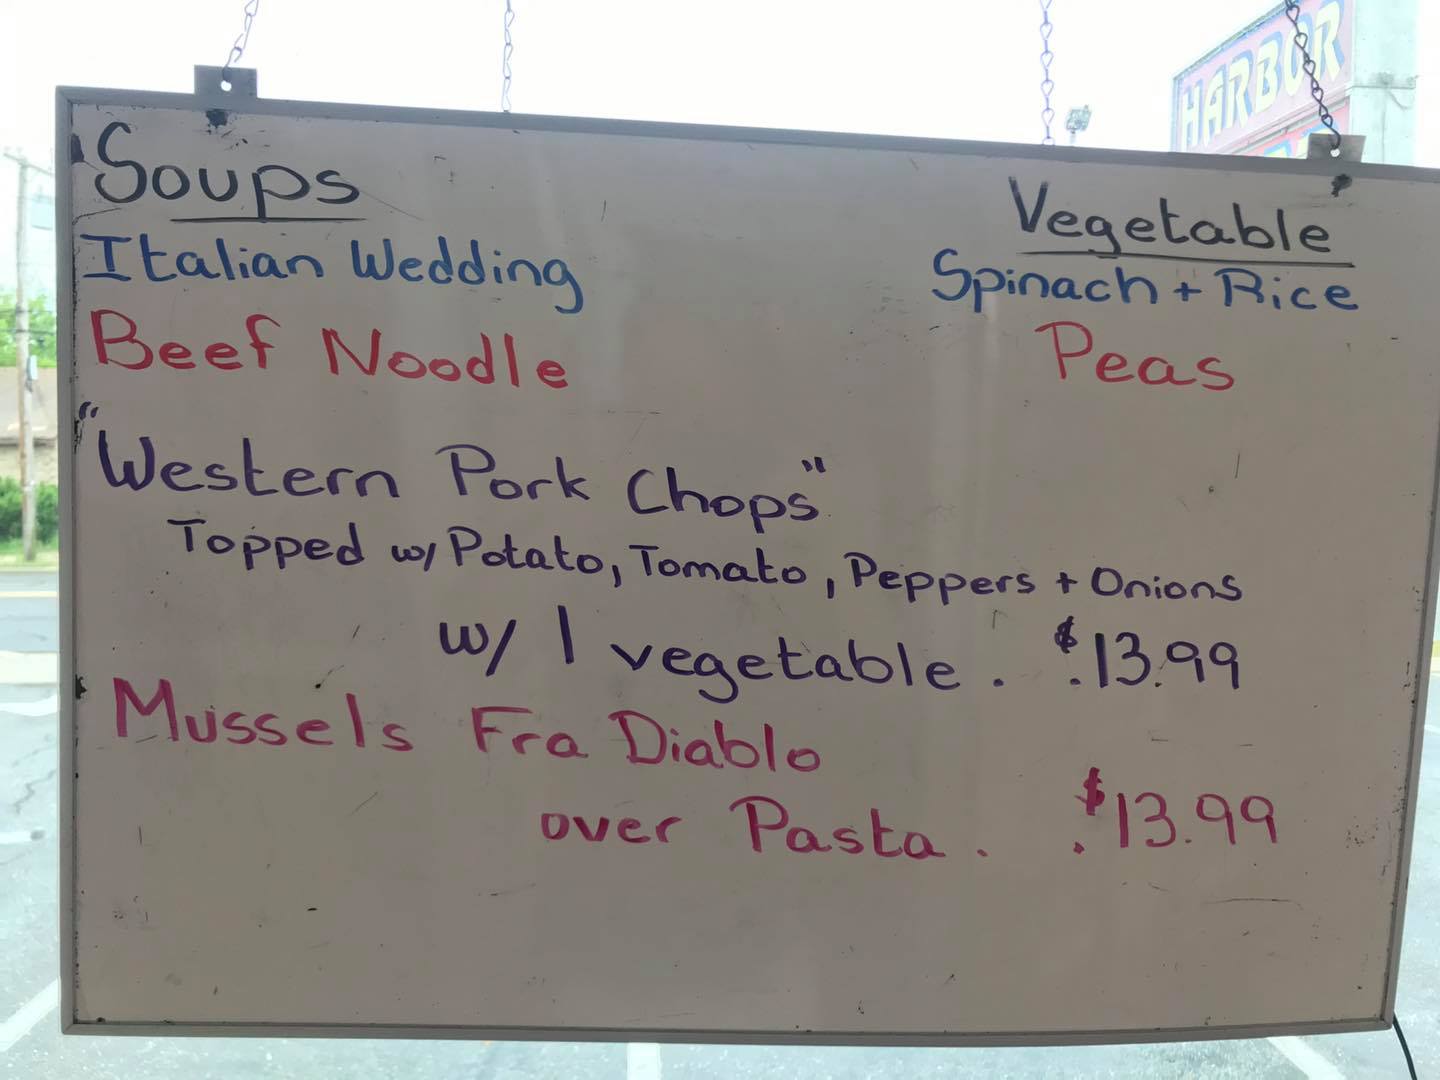 Soups
Italian Wedding
Beef Noodle
Vegetable
Spinach + Rice
Peas
"Western Pork Chops"
Topped w/ Potato, Tomato, Peppers + Onions
w/ 1 vegetable . . $13.99
Mussels Fra Diablo
over Pasta . . $13.99
HARBOR